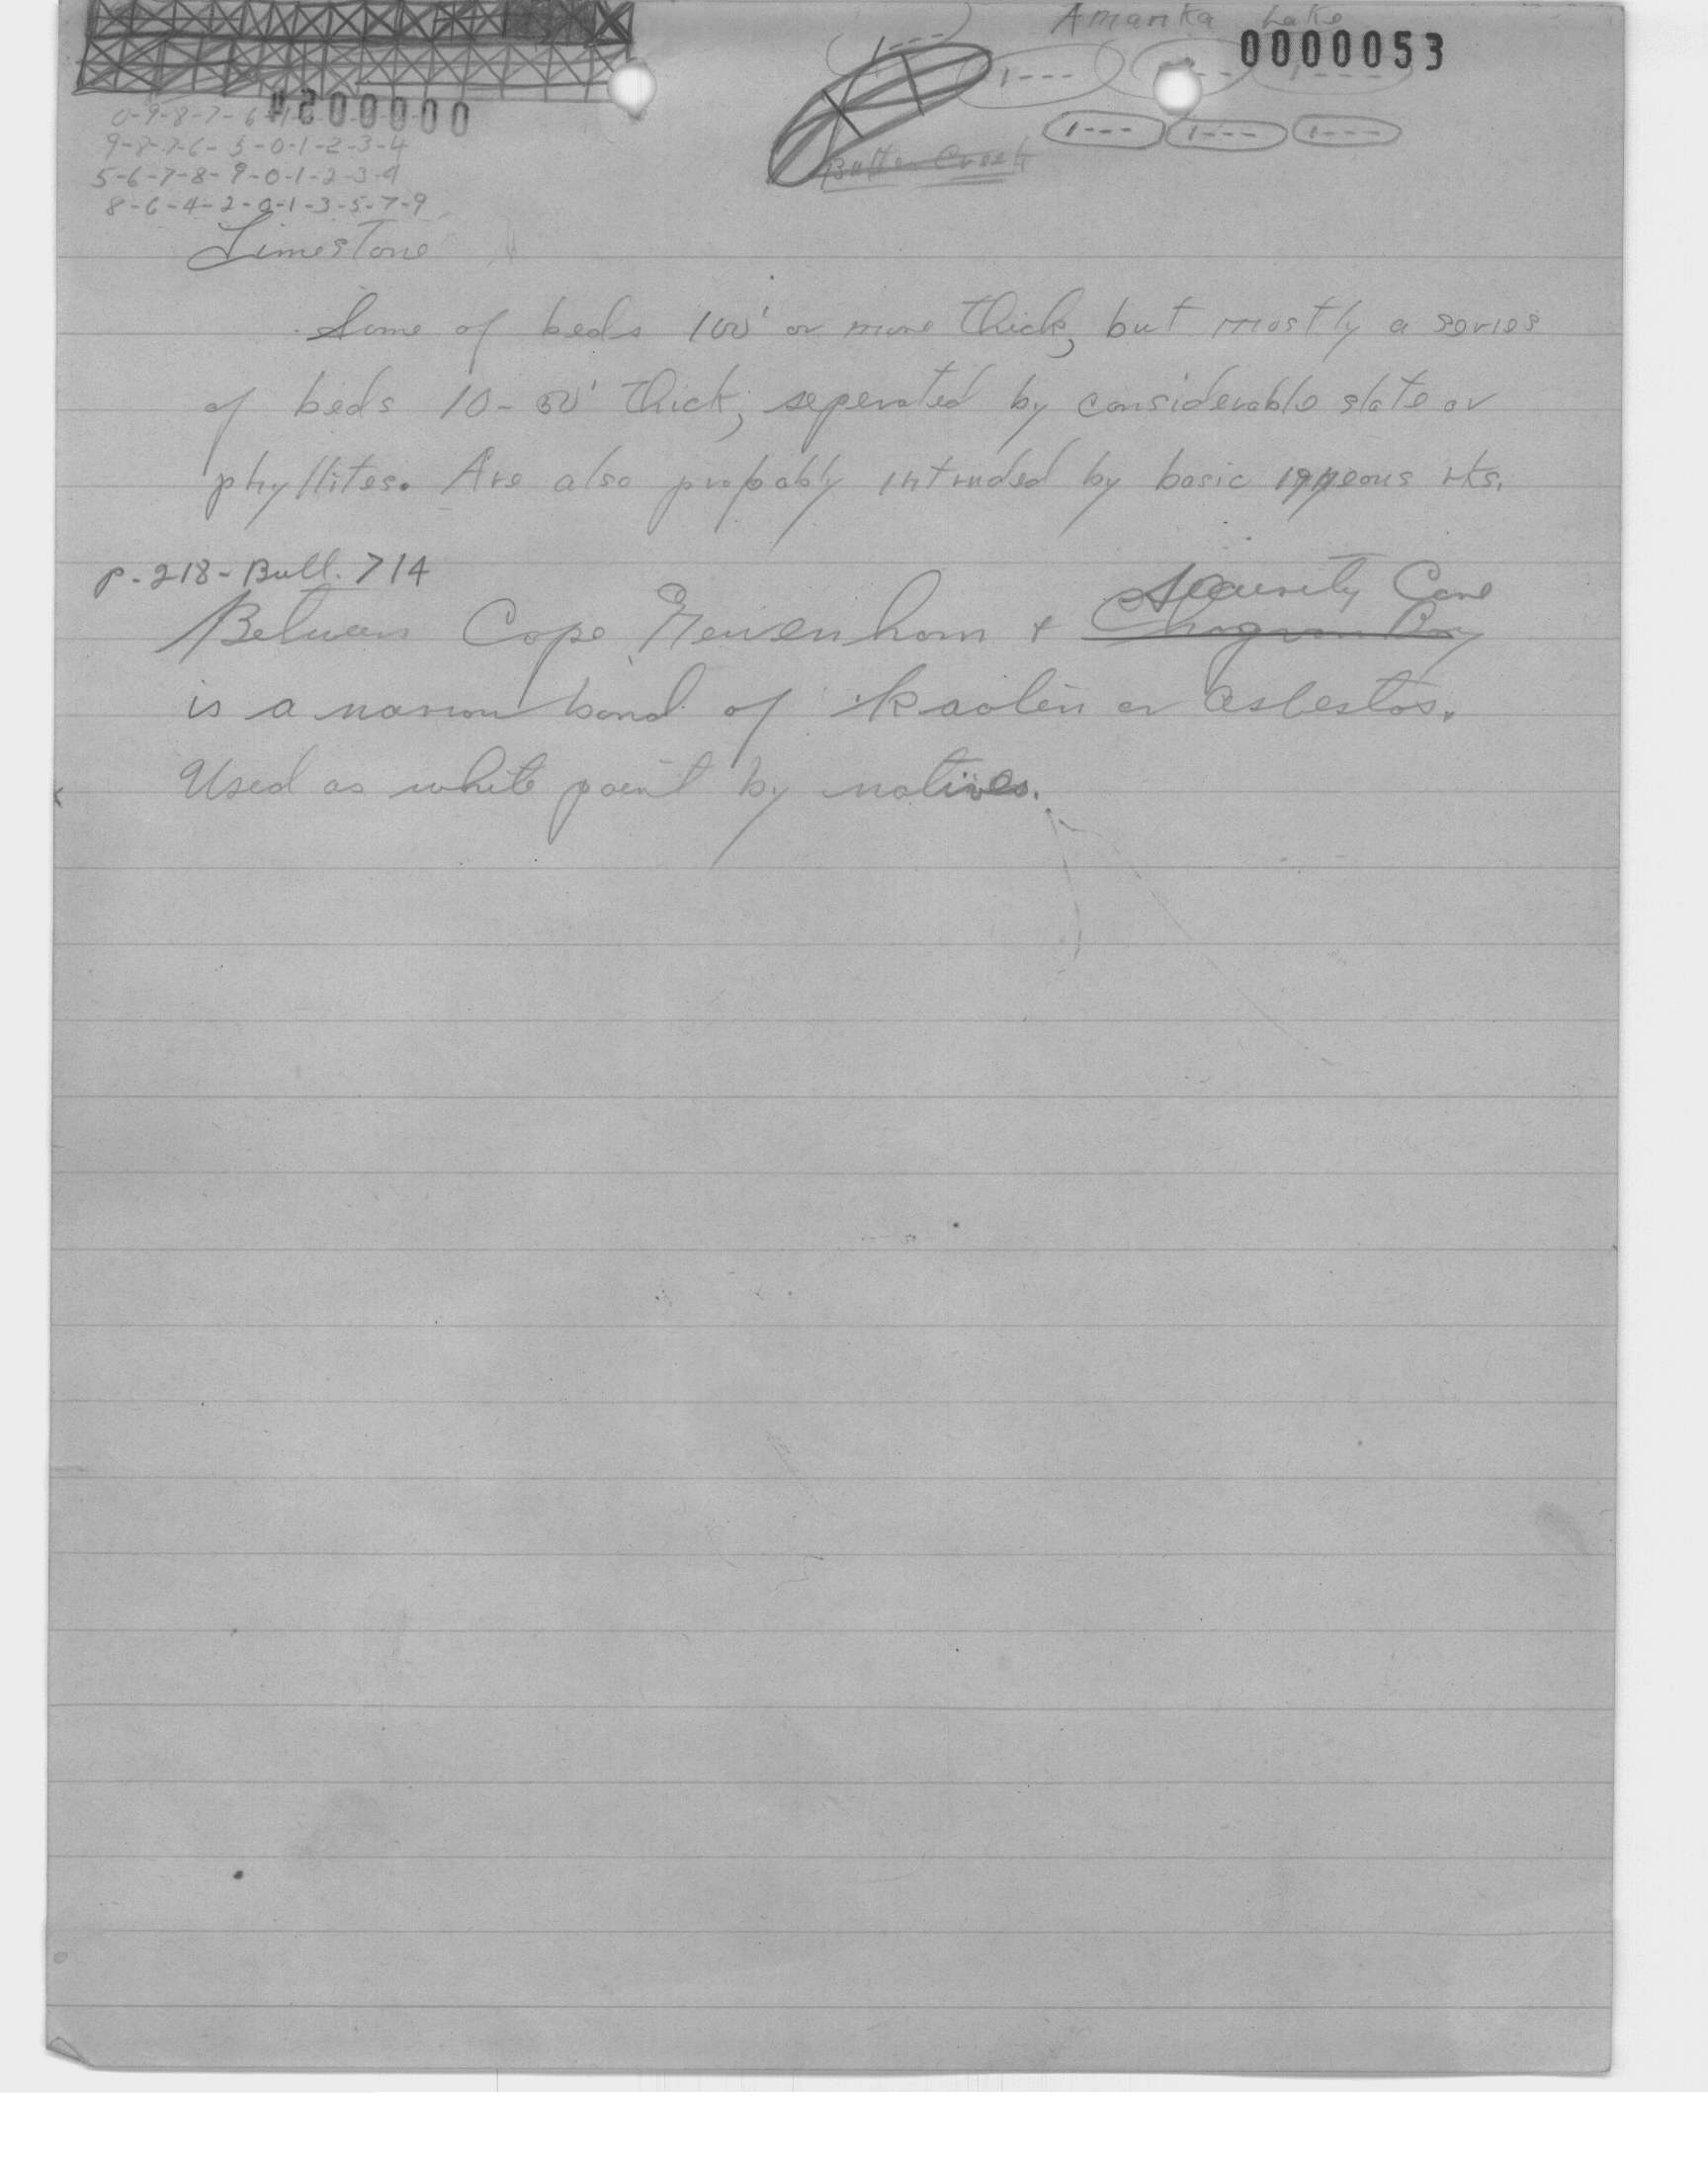 Amanka Lake
0000053
0000054
1---
1---
1---
1---
1---
1---
Butter Creek
0-9-8-7-6
9-8-7-6-5-0-1-2-3-4
5-6-7-8-9-0-1-2-3-4
8-6-4-2-0-1-3-5-7-9
Limestone
Some of beds 100' or more thick, but mostly a series
of beds 10-50' thick, seperated by considerable slate or
phyllites. Are also probably intruded by basic igneous rks.
p. 218-Bull. 714
Security Cove
Between Cape Newenham & Chagvan Bay
is a narrow band of kaolin or asbestos.
Used as white paint by natives.